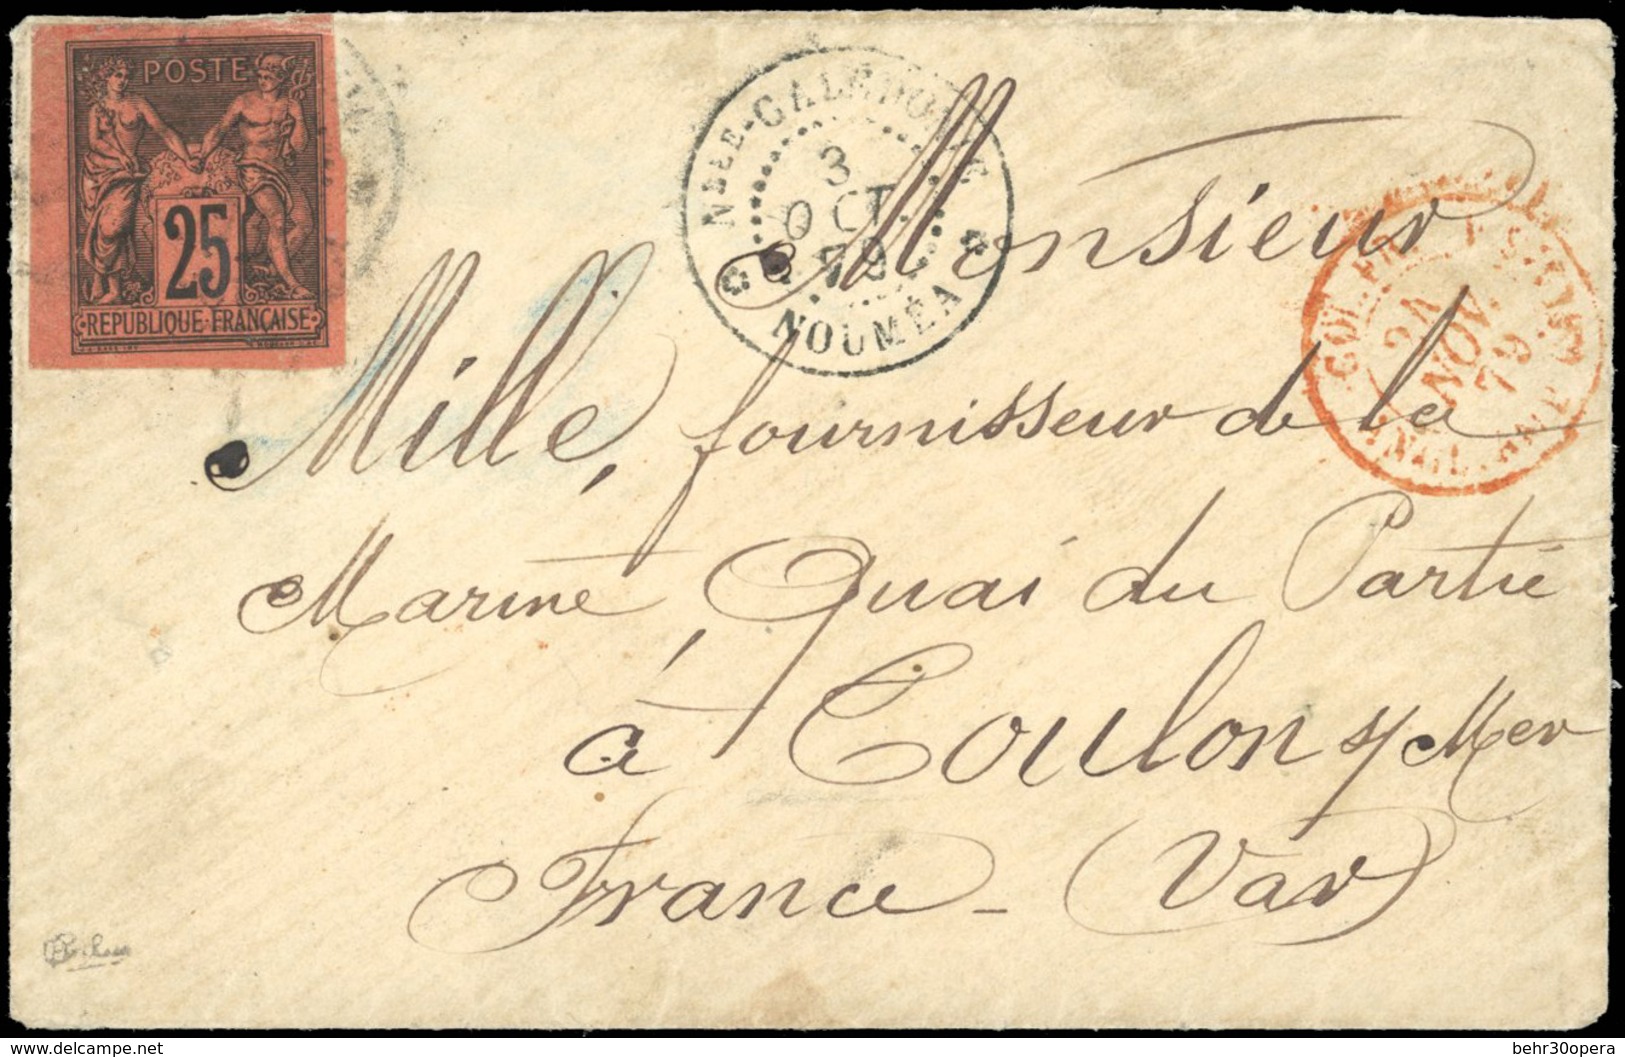 POSTE
25
REPUBLIQUE FRANÇAISE
NLLE-CALEDONIE
3
OCT
79
NOUMÉA
COL. FR. V. S. FRCO
24
NOV.
79
Monsieur
Mille, fournisseur de la
Marine, Quai du Partie
à Toulon s/Mer
France - (Var)
www.delcampe.net
behr30opera